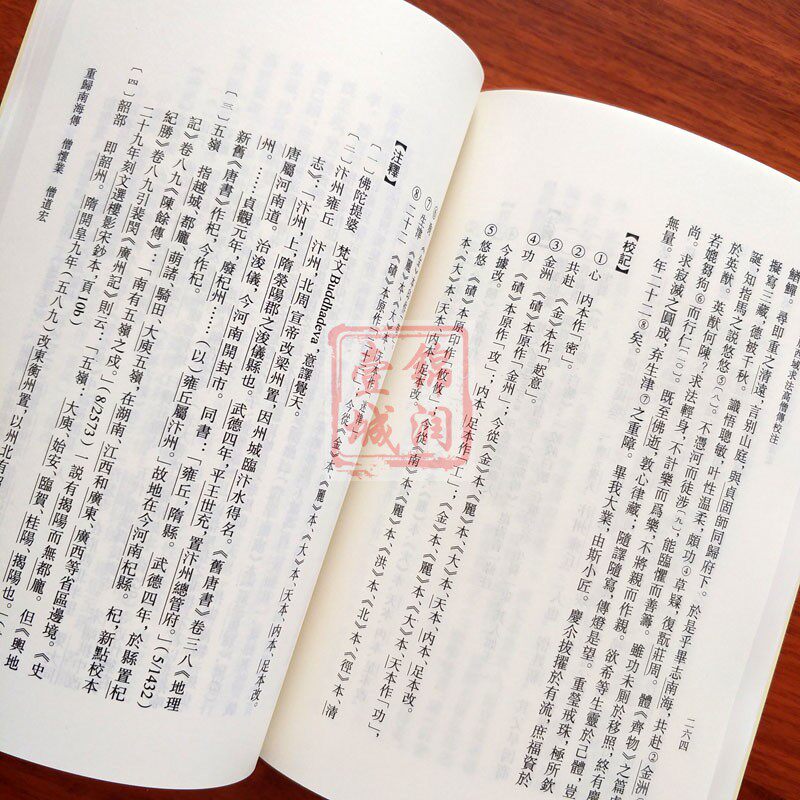 西域求法高僧傳校注
二六四
尋即重之清遠,言別山庭,與貞固師同歸府下。於是乎畢志南海,共赴②金洲
擬寫三藏,德被千秋。識悟聰敏,叶性溫柔,頗功④草疑,復翫莊周。體《齊物》之篇
誕,知指馬之說悠悠⑤〔八〕。不憑河而徒涉〔九〕,能臨懼而善籌。雖功未則於移照,終有慶
於英猷。英猷何陳?求法輕身,不計樂而爲樂,不將親而作親。欲希等生靈於己體,豈
若媲芻狗⑥而行仁〔一〇〕。既至佛逝,敦心律藏;隨譯隨寫,傳燈是望。重瑩戒珠,極所欽
尚。求寂滅之圓成,弃生津⑦之重障。畢我大業,由斯小匠。慶尒拔擢於有流,庶福資於
無量。年二十二⑧矣。
【校記】
①心 内本作「密」。
②共赴 《金》本作「起意」。
③金洲 《磧》本原作「金州」;今從《金》本、《麗》本、《大》本、天本、内本、足本改。
④功 《磧》本原作「攻」;今從《金》本、《麗》本、《大》本、天本作「功」,
今據改。
⑤悠悠 《磧》本原印作
⑦生津
⑧二十二 《磧》本原作「二十」;今從《金》本、《麗》本、《大》本、天本、内本、足本改。
【注釋】
〔一〕佛陀提婆 梵文Buddhadeva 意譯覺天。
〔二〕汴州雍丘 汴州,北周宣帝改梁州置,因州城臨汴水得名。《舊唐書》卷三八《地理
志》:「汴州,上,隋滎陽郡之浚儀縣也。武德四年,平王世充,置汴州總管府。」(5/1432)
唐屬河南道。治浚儀,今河南開封市。同書:「雍丘,隋縣。武德四年,於縣置杞
州。……貞觀元年,廢杞州……(以)雍丘屬汴州。」故地在今河南杞縣。杞,新點校本
新舊《唐書》作杞,今作杞。
〔三〕五嶺 指越城、都龐、萌諸、騎田、大庾五嶺,在湖南、江西和廣東、廣西等省區邊境。《史
記》卷八九《陳餘傳》:「南有五嶺之戍。」(8/2573)一說有揭陽而無都龐。但《輿地
紀勝》卷八九引裴閔《廣州記》則云:「五嶺:大庾、始安、臨賀、桂陽、揭陽也。」(
二十九年刻文選樓影宋鈔本,頁10b)
〔四〕韶部 即韶州。隋開皇九年(五八九)改東衡州置,以州北有韶
重歸南海傳 僧懷業 僧道宏
錦潤
壹城